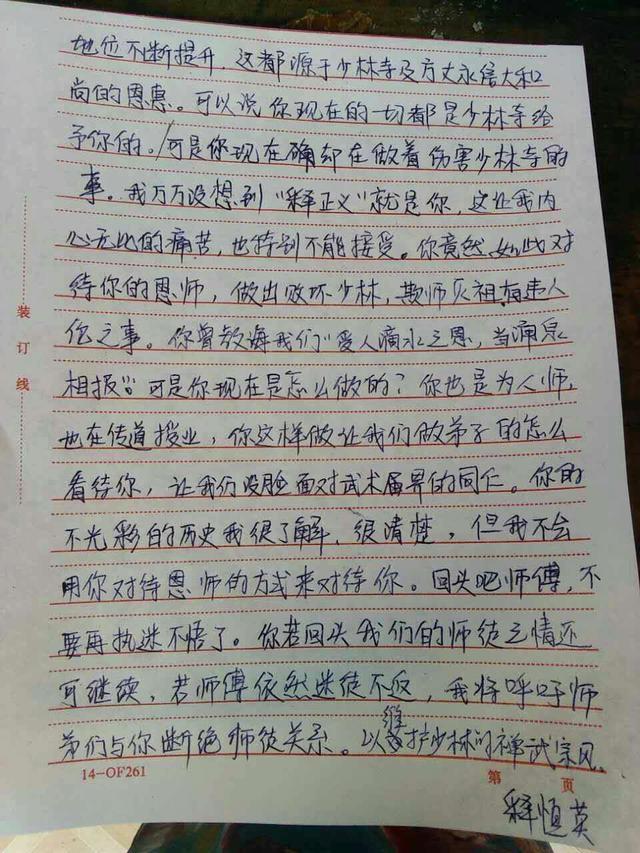 地位不断提升，这都源于少林寺及方丈永信大和
尚的恩惠。可以说你现在的一切都是少林寺给
予你的。可是你现在确却在做着伤害少林寺的
事。我万万没想到“释正义”就是你，这让我内
心无比的痛苦，也特别不能接受。你竟然如此对
待你的恩师，做出败坏少林，欺师灭祖有违人
伦之事。你曾教诲我们“受人滴水之恩，当涌泉
相报”可是你现在是怎么做的？你也是为人师，
也在传道授业，你这样做让我们做弟子的怎么
看待你，让我们没脸面对武术届界的同仁。你的
不光彩的历史我很了解，很清楚，但我不会
用你对待恩师的方式来对待你。回头吧师傅，不
要再执迷不悟了。你若回头我们的师徒之情还
可继续，若师傅依然迷徒不返，我将呼吁师
弟们与你断绝师徒关系。以维护少林的禅武宗风。
14-OF261
第 页
释恒英
装订线